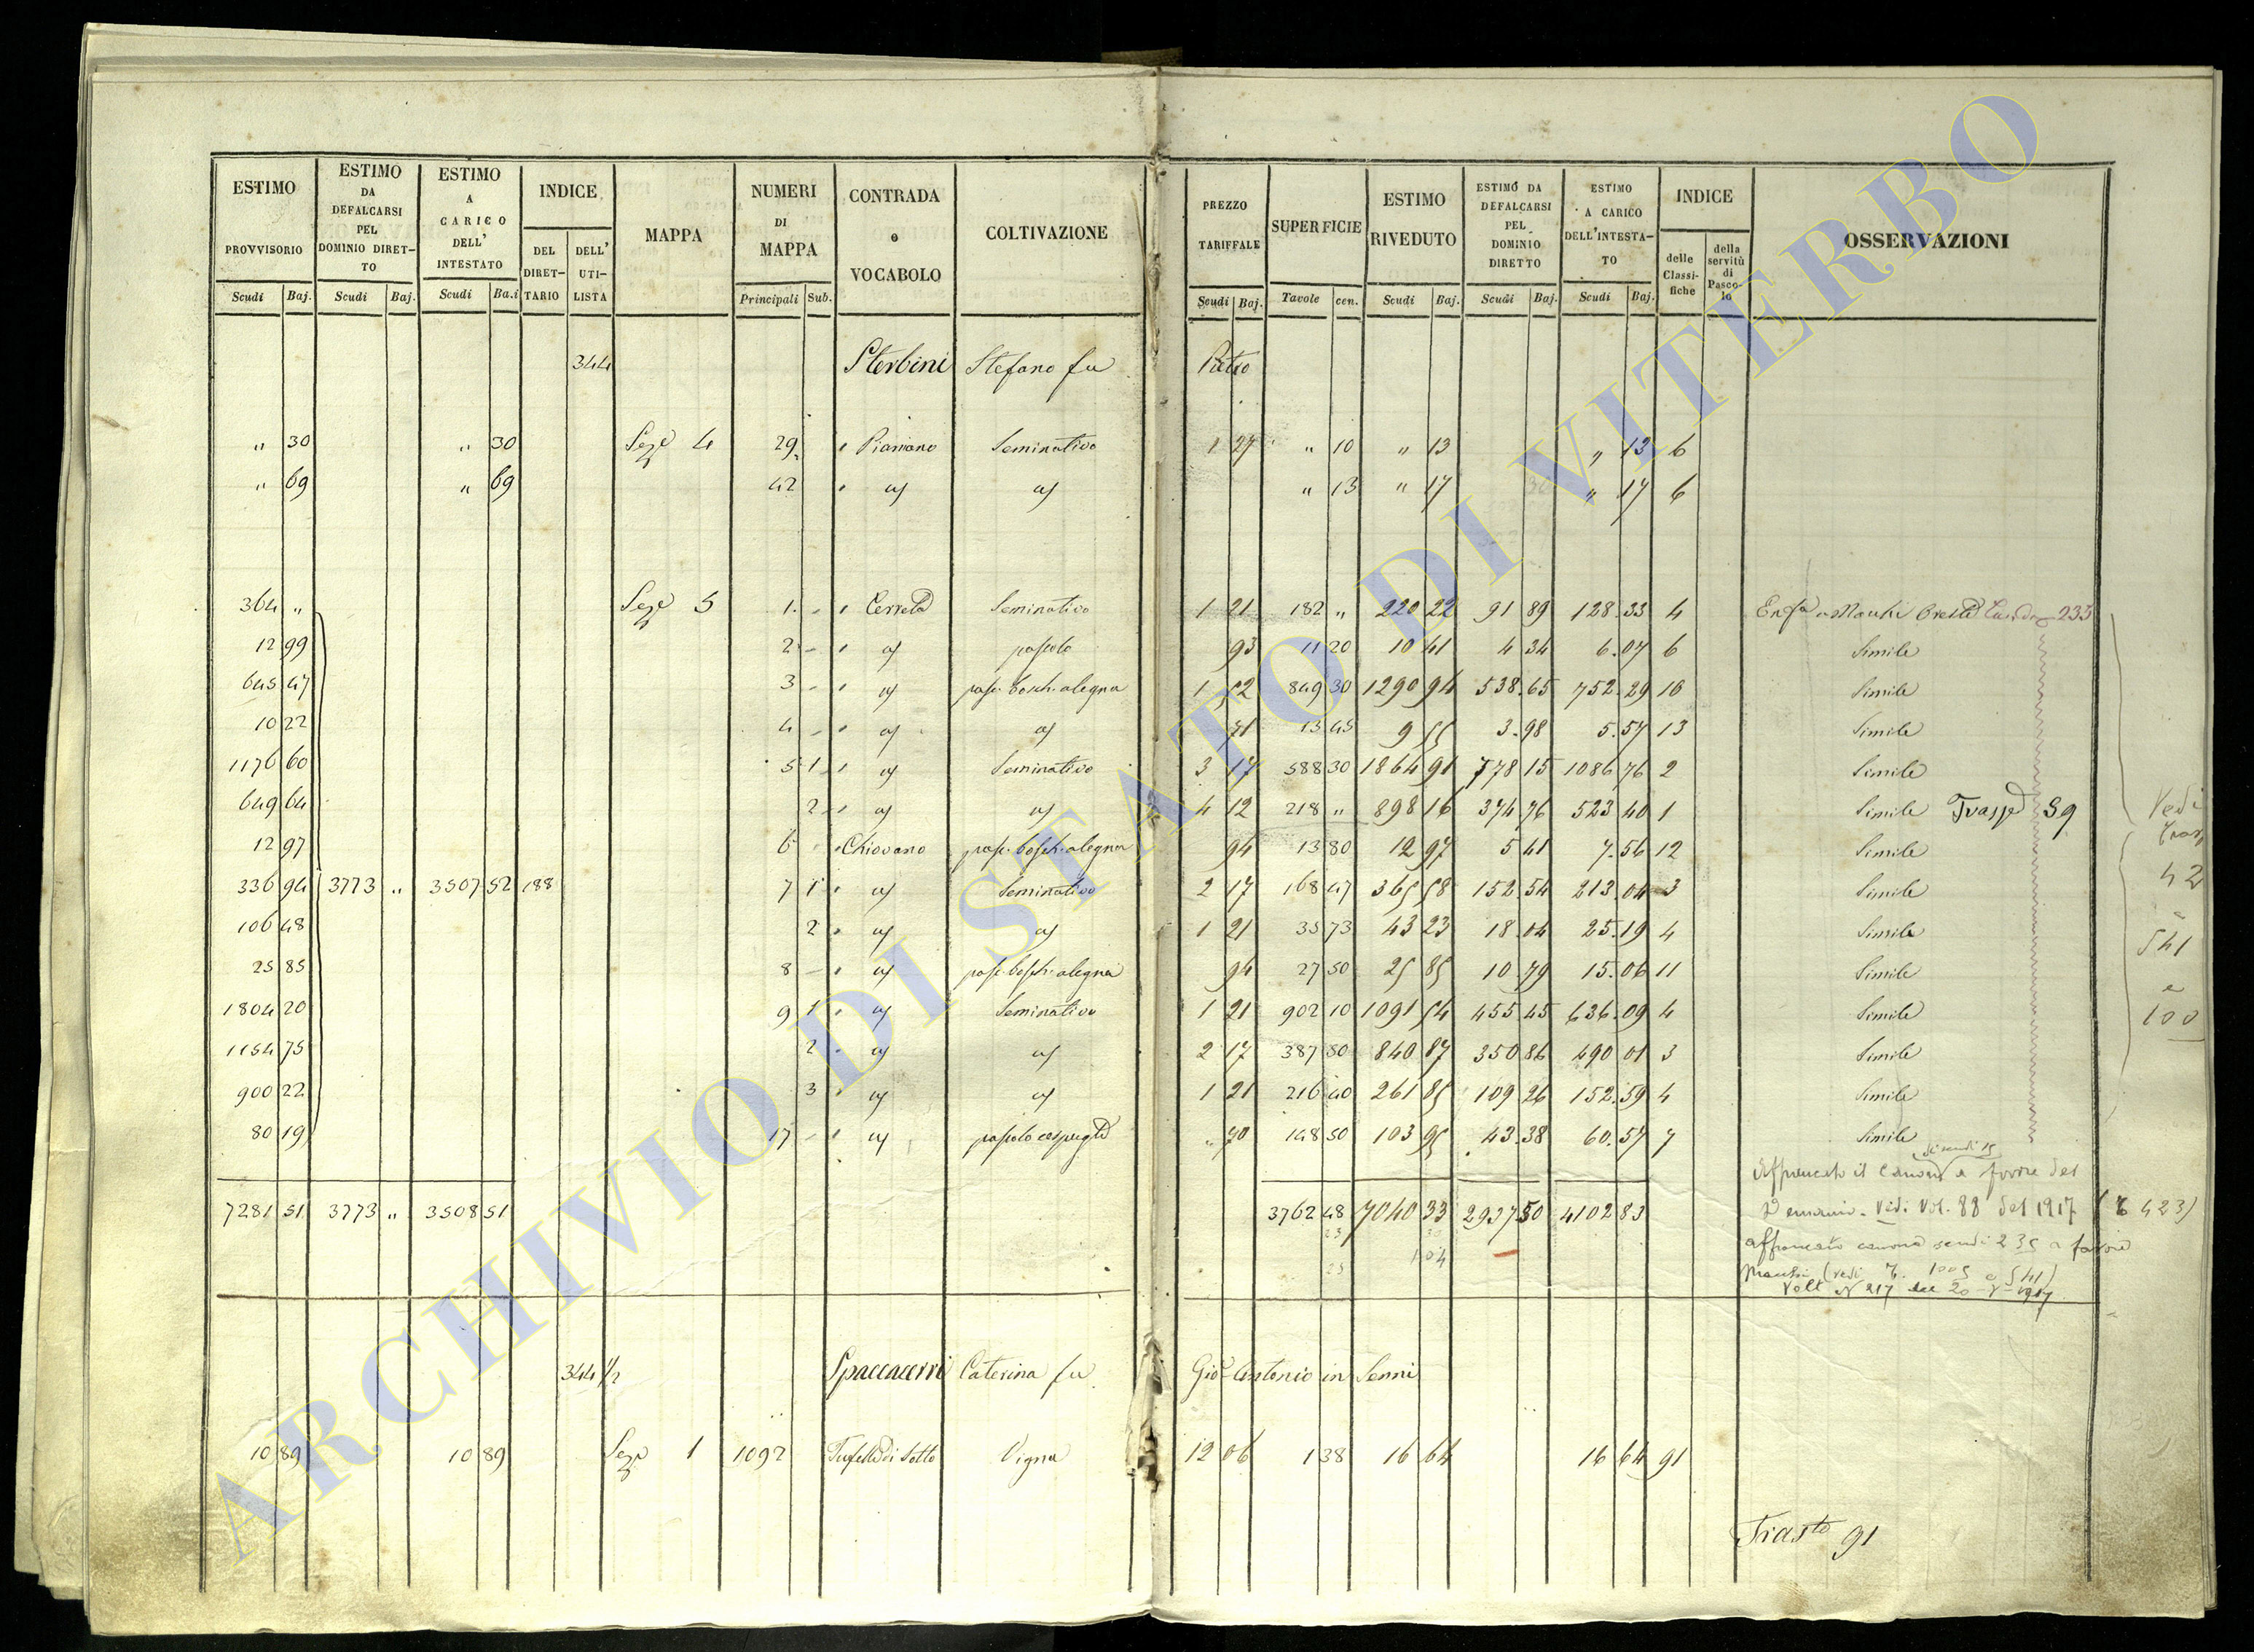 ESTIMO PROVVISORIO Scudi Baj.
ESTIMO DA DEFALCARSI PEL DOMINIO DIRET-TO Scudi Baj.
ESTIMO A CARICO DELL' INTESTATO Scudi Ba.i
INDICE DEL DIRET-TARIO DELL' UTI-LISTA
MAPPA
NUMERI DI MAPPA Principali Sub.
CONTRADA o VOCABOLO
COLTIVAZIONE
PREZZO TARIFFALE Scudi Baj.
SUPERFICIE Tavole cen.
ESTIMO RIVEDUTO Scudi Baj.
ESTIMO DA DEFALCARSI PEL DOMINIO DIRETTO Scudi Baj.
ESTIMO A CARICO DELL'INTESTA-TO Scudi Baj.
INDICE delle Classi-fiche della servitù di Pasco-lo
OSSERVAZIONI
344 Sterbini Stefano fu Pietro
" 30 " 30 Sezе 4 29 Piansano Seminativo 1 27 " 10 " 13 " 13 6
" 69 " 69 42 " 13 " 17 " 17 6
364 " Sezе 5 1 Cerreto Seminativo 1 21 182 " 220 22 91 89 128.33 4 233
12 99 2 pascolo 93 11 20 10 41 4 34 6.07 6 Simile
645 47 3 pasc. bosch. alegna 1 52 849 30 1290 94 538.65 752.29 10 Simile
10 22 4 71 13 45 9 55 3.98 5.57 13 Simile
1176 60 5 1 Seminativo 3 17 588 30 1864 91 778 15 1086 76 2 Simile
649 64 2 4 12 218 " 898 16 374 76 523 40 1 Simile Trasp 59
12 97 6 Chiovano pasc. bosch. alegna 94 13 80 12 97 5 41 7.56 12 Simile
336 94 3773 " 3507 52 188 7 1 Seminativo 2 17 168 47 365 58 152.54 213.04 3 Simile
106 48 2 1 21 35 73 43 23 18.04 25.19 4 Simile
25 85 8 pasc. bosch. alegna 94 27 50 25 85 10 79 15.06 11 Simile
1804 20 9 1 Seminativo 1 21 902 10 1091 54 455 45 636.09 4 Simile
1154 75 2 2 17 387 50 840 87 350 86 490 01 3 Simile
900 22 3 1 21 216 40 261 85 109 26 152.59 4 Simile
80 19 17 pascolo cespugl " 70 148 50 103 95 43.38 60.57 7 Simile
Vedi
42
e
541
e
100
di scudi 15
Affrancato il Canone a favore del
7281 51 3773 " 3508 51 3762 48 7040 33 2937 50 4102 83 Demanio. Vedi Vol. 88 del 1917 423)
affrancato canone scudi 235 a favore
344 1/2 Spaccacerri Caterina fu Gio Antonio in Senni
10 89 10 89 Sezе 1 1092 di Sotto Vigna 12 06 1 38 16 64 16 64 91
91
ARCHIVIO DI STATO DI VITERBO